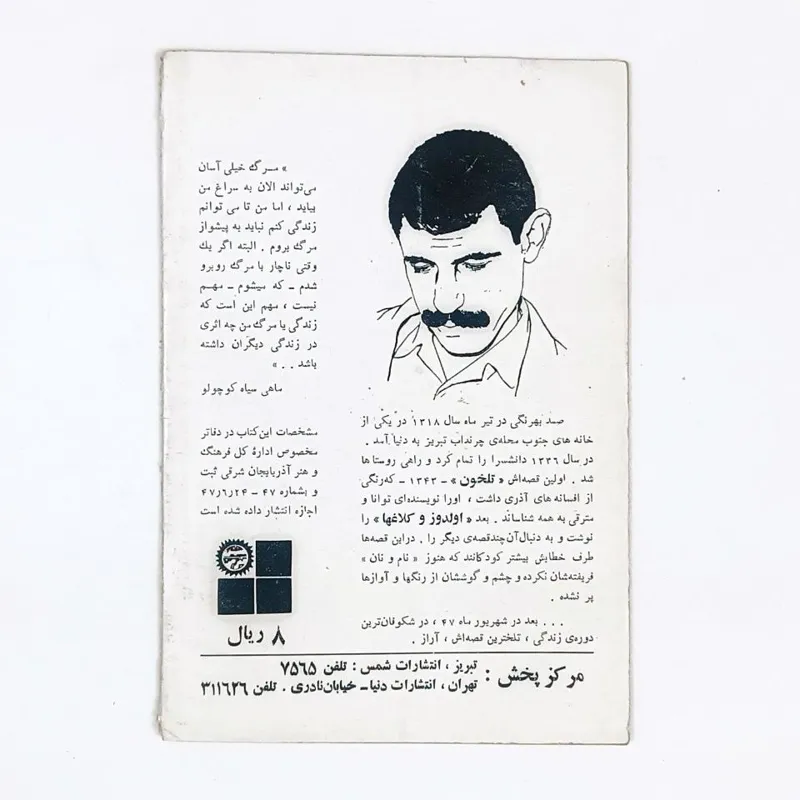 « مـرگ خیلی آسان
می‌تواند الان به سراغ من
بیاید ، اما من تا می توانم
زندگی کنم نباید به پیشواز
مرگ بروم . البته اگر یك
وقتی ناچار با مرگ روبرو
شدم ـ که میشوم ـ مهـم
نیست ، مهم این است که
زندگی یا مرگ من چه اثری
در زندگی دیگران داشته
باشد . . »
ماهی سیاه کوچولو
صمد بهرنگی در تیر ماه سال ۱۳۱۸ در یکی از
خانه های جنوب محله‌ی چرنداب تبریز به دنیا آمد .
در سال ۱۳۳۶ دانشسرا را تمام کرد و راهی روستاها
شد . اولین قصه‌اش « تلخون » ـ ۱۳۴۳ ـ که‌رنگی
از افسانه های آذری داشت ، اورا نویسنده‌ای توانا و
مترقی به همه شناساند . بعد « اولدوز و کلاغها » را
نوشت و به دنبال‌آن‌چندقصه‌ی دیگر را . دراین قصه‌ها
طرف خطابش بیشتر کودکانند که هنوز « نام و نان »
فریفته‌شان نکرده و چشم و گوششان از رنگها و آوازها
پر نشده .
. . . بعد در شهریور ماه ۴۷ ، در شکوفان‌ترین
دوره‌ی زندگی ، تلخترین قصه‌اش ، آراز .
مشخصات این‌کتاب در دفاتر
مخصوص ادارهٔ کل فرهنگ
و هنر آذربایجان شرقی ثبت
و بشماره ۴۷ ـ ۴۷٫۶٫۲۴
اجازه انتشار داده شده است
۸ ریال
مرکز پخش :
تبریز ، انتشارات شمس : تلفن ۷۵۶۵
تهران ، انتشارات دنیا ـ خیابان‌نادری . تلفن ۳۱۱۶۲۶